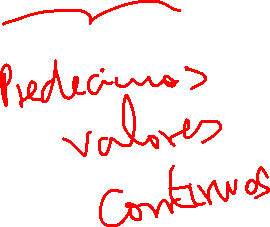 Predecimos
valores
continuos